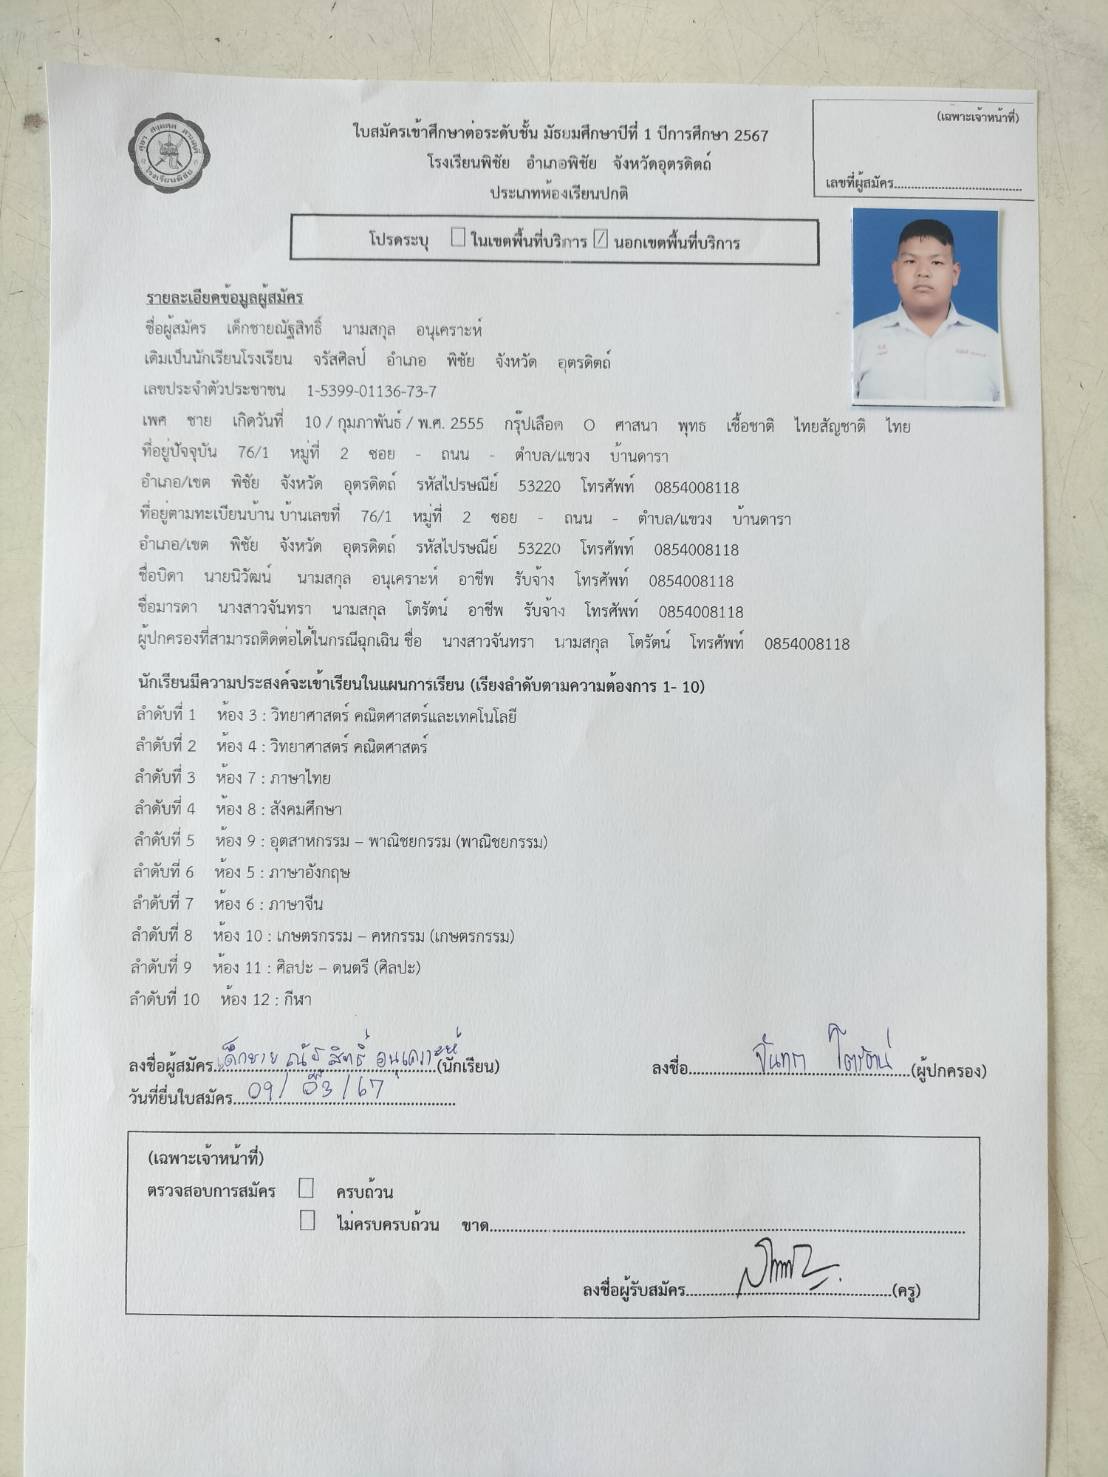 (เฉพาะเจ้าหน้าที่)
ใบสมัครเข้าศึกษาต่อระดับชั้น มัธยมศึกษาปีที่ 1 ปีการศึกษา 2567
โรงเรียนพิชัย อำเภอพิชัย จังหวัดอุตรดิตถ์
ประเภทห้องเรียนปกติ
เลขที่ผู้สมัคร
โรงเรียนพิชัย
โปรดระบุ ในเขตพื้นที่บริการ / นอกเขตพื้นที่บริการ
รายละเอียดข้อมูลผู้สมัคร
ชื่อผู้สมัคร เด็กชายณัฐสิทธิ์ นามสกุล อนุเคราะห์
เดิมเป็นนักเรียนโรงเรียน จรัสศิลป์ อำเภอ พิชัย จังหวัด อุตรดิตถ์
เลขประจำตัวประชาชน 1-5399-01136-73-7
เพศ ชาย เกิดวันที่ 10 / กุมภาพันธ์ / พ.ศ. 2555 กรุ๊ปเลือด O ศาสนา พุทธ เชื้อชาติ ไทยสัญชาติ ไทย
ที่อยู่ปัจจุบัน 76/1 หมู่ที่ 2 ซอย - ถนน - ตำบล/แขวง บ้านดารา
อำเภอ/เขต พิชัย จังหวัด อุตรดิตถ์ รหัสไปรษณีย์ 53220 โทรศัพท์ 0854008118
ที่อยู่ตามทะเบียนบ้าน บ้านเลขที่ 76/1 หมู่ที่ 2 ซอย - ถนน - ตำบล/แขวง บ้านดารา
อำเภอ/เขต พิชัย จังหวัด อุตรดิตถ์ รหัสไปรษณีย์ 53220 โทรศัพท์ 0854008118
ชื่อบิดา นายนิวัฒน์ นามสกุล อนุเคราะห์ อาชีพ รับจ้าง โทรศัพท์ 0854008118
ชื่อมารดา นางสาวจันทรา นามสกุล โตรัตน์ อาชีพ รับจ้าง โทรศัพท์ 0854008118
ผู้ปกครองที่สามารถติดต่อได้ในกรณีฉุกเฉิน ชื่อ นางสาวจันทรา นามสกุล โตรัตน์ โทรศัพท์ 0854008118
นักเรียนมีความประสงค์จะเข้าเรียนในแผนการเรียน (เรียงลำดับตามความต้องการ 1- 10)
ลำดับที่ 1 ห้อง 3 : วิทยาศาสตร์ คณิตศาสตร์และเทคโนโลยี
ลำดับที่ 2 ห้อง 4 : วิทยาศาสตร์ คณิตศาสตร์
ลำดับที่ 3 ห้อง 7 : ภาษาไทย
ลำดับที่ 4 ห้อง 8 : สังคมศึกษา
ลำดับที่ 5 ห้อง 9 : อุตสาหกรรม – พาณิชยกรรม (พาณิชยกรรม)
ลำดับที่ 6 ห้อง 5 : ภาษาอังกฤษ
ลำดับที่ 7 ห้อง 6 : ภาษาจีน
ลำดับที่ 8 ห้อง 10 : เกษตรกรรม – คหกรรม (เกษตรกรรม)
ลำดับที่ 9 ห้อง 11 : ศิลปะ – ดนตรี (ศิลปะ)
ลำดับที่ 10 ห้อง 12 : กีฬา
ลงชื่อผู้สมัคร เด็กชาย ณัฐสิทธิ์ อนุเคราะห์ (นักเรียน) ลงชื่อ จันทรา โตรัตน์ (ผู้ปกครอง)
วันที่ยื่นใบสมัคร 09/ 03 /67
(เฉพาะเจ้าหน้าที่)
ตรวจสอบการสมัคร ครบถ้วน
ไม่ครบครบถ้วน ขาด
ลงชื่อผู้รับสมัคร (ครู)